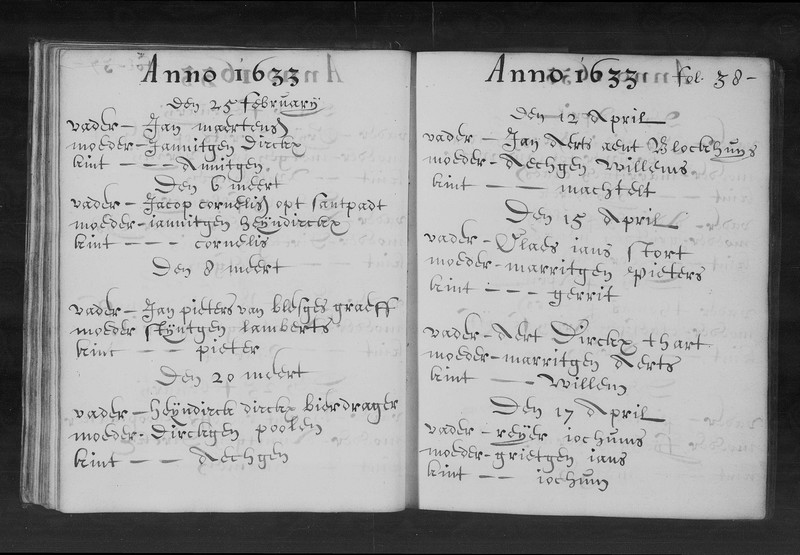 Anno 1633
Den 25 february
vader - Jan maertens
moeder - Jannitgen Dirckx
kint - - - Annitgen
Den 6 meert
vader - Jacop cornelis opt santpadt
moeder - iannitgen heyndirckx
kint - - - cornelis
Den 8 meert
vader - Jan pieters van blesges graeff
moeder styntgen lamberts
kint - - - pieter
Den 20 meert
vader - heyndirck dirckx bierdrager
moeder - Dirckgen poolen
kint - - - Aechgen
Anno 1633 fol. 38 -
Den 12 April
vader - Jan Aerts aent Blockhuys
moeder - Aechgen willems
kint - - - machtelt
Den 15 April
vader - Claes ians stort
moeder - marritgen pieters
kint - - - gerrit
vader - Aert Dirckx thart
moeder - marritgen Aerts
kint - - - willem
Den 17 April
vader - reyer iochums
moeder - grietgen ians
kint - - - iochum